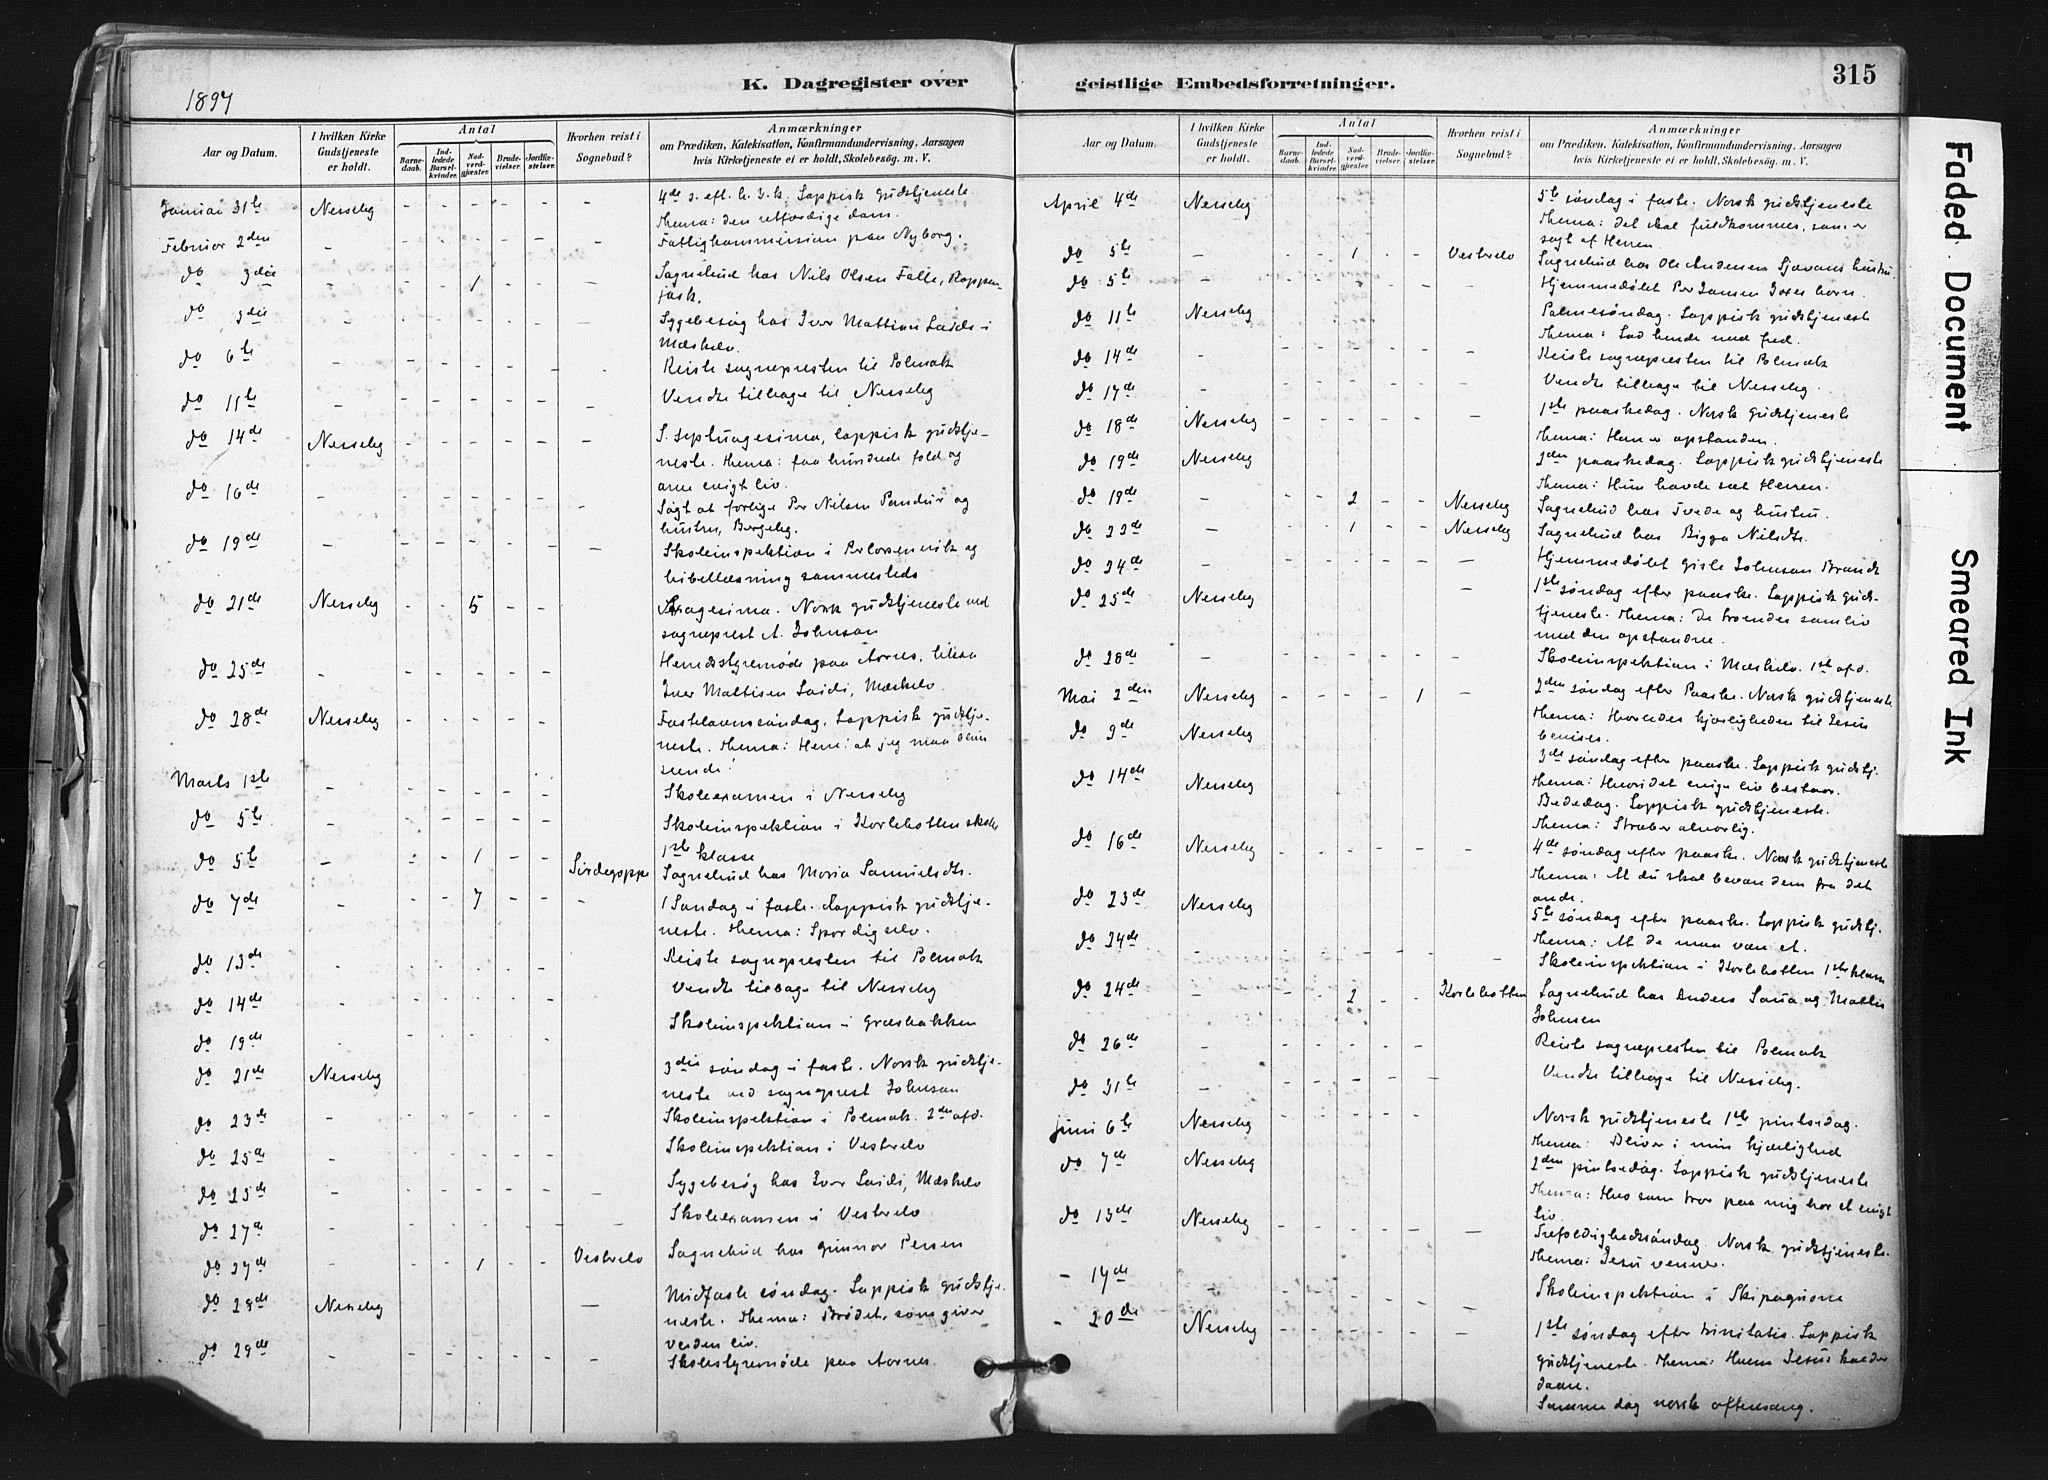 K. Dagregister over geistlige Embedsforretninger.
315
1897
Aar og Datum.
I hvilken Kirke Gudstjeneste er holdt.
Antal
Barnedaab.
Indledede Barselkvinder.
Nadverdgjæster.
Brudevielser.
Jordfæstelser.
Hvorhen reist i Sognebud?
Anmærkninger
om Prædiken, Katekisation, Konfirmandundervisning, Aarsagen
hvis Kirketjeneste ei er holdt, Skolebesög. m. V.
Januar 31te Nesseby 4de s. eft. h. 3. k. Lappisk gudstjeneste.
Thema: den retfærdige dom.
Februar 2den - - - - - - - Fattigkommission paa Nyborg.
do 3die - - - 1 - - - Sognebud hos Nils Olsen Falle, Koppen-
jask.
do 3die - - - - - - - Sygebesøg hos Iver Mathisen Saidi i
Mæskelv.
do 6te - - - - - - - Reiste sognepresten til Polmak
do 11te - - - - - - - Vendte tilbage til Nesseby
do 14de Nesseby - - - - - - S. septuagesima, lappisk gudstje-
neste. Thema: faa hundrede fold og
arve evigt liv.
do 16de - - - - - - - Søgt at forlige Per Nilsen Pandur og
hustru, Bergeby.
do 19de - - - - - - - Skoleinspektion i Perlorsenvik og
bibellæsning sammesteds
do 21de Nesseby - - 5 - - Sexagesima. Norsk gudstjeneste ved
sogneprest A. Johnson
do 25de - - - - - - Herredsstyremøde paa Aarnes, tilsaa
Iver Mathisen Saidi, Mæskelv
do 28de Nesseby - - - - - Fastelavnssøndag. Lappisk gudstje-
neste. Thema: Herre: at jeg maa blive
seende!
Marts 1ste - - - - - - Skoleexamen i Nesseby
do 5te - - - - - - - Skoleinspektion i Karlebotten skole
1ste klasse
do 5te - - - 1 - - Sirdagoppe Sognebud hos Maria Samuelsdtr.
do 7de - - - 7 - - - 1 Søndag i faste. Lappisk gudstje-
neste. Thema: Spør dig selv.
do 13de - - - - - - Reiste sognepresten til Polmak
do 14de - - - - - - Vendte tilbage til Nesseby
do 19de - - - - - - Skoleinspektion i Græsbakken
do 21de Nesseby 3die søndag i faste. Norsk gudstje-
neste ved sogneprest Johnson
do 23de - - - - - - Skoleinspektion i Polmak. 2den afd.
do 25de - - - - - - Skoleinspektion i Vesterelv
do 25de - - - - - - - Sygebesøg hos Iver Saidi, Mæskelv
do 27de - - - - - - - Skoleexamen i Vesterelv
do 27de - - - 1 - - Vesterelv Sognebud hos Gunnor Persen
do 28de Nesseby - Midfaste søndag. Lappisk gudstje-
neste. Thema: Brødet, som giver
verden liv.
do 29de - - - - - - - Skolestyremøde paa Aarnes.
Aar og Datum.
I hvilken Kirke Gudstjeneste er holdt.
Antal
Barnedaab.
Indledede Barselkvinder.
Nadverdgjæster.
Brudevielser.
Jordfæstelser.
Hvorhen reist i Sognebud?
Anmærkninger
om Prædiken, Katekisation, Konfirmandundervisning, Aarsagen
hvis Kirketjeneste ei er holdt, Skolebesög. m. V.
April 4de Nesseby 5te søndag i faste. Norsk gudstjeneste
Thema: Det skal fuldkommes, som er
sagt af Herren.
do 5te - - - 1 - - Vesterelv Sognebud hos Ole Andersen Sjavans hustru
do 5te - - - - - - - Hjemmedøbt Per Jansen Joxes barn.
do 11te Nesseby Palmesøndag. Lappisk gudstjeneste
Thema: Lad hende med fred.
do 14de - - - - - - - Reiste sognepresten til Polmak
do 17de - - - - - - - Vendte tilbage til Nesseby.
do 18de Nesseby - - - - - - 1ste paaskedag. Norsk gudstjeneste
Thema: Han er opstanden.
do 19de Nesseby 2den paaskedag. Lappisk gudstjeneste
Thema: Hun havde seet Herren.
do 19de - - - 2 - - Nesseby Sognebud hos Tvede og hustru.
do 22de - - - 1 - - Nesseby Sognebud hos Bigga Nilsdtr.
do 24de - - - - - - - Hjemmedøbt Gisle Johnson Brandt
do 25de Nesseby - 1ste søndag efter paaske. Lappisk gud-
tjeneste. Thema: De troendes samliv
med den opstandne.
do 28de - - - - - - - Skoleinspektion i Mæskelv. 1ste afd.
Mai 2den Nesseby - - - - 1 - 2den søndag efter Paaske. Norsk gudstjeneste
Thema: Hvorledes kjærligheden til Jesus
bevises.
do 9de Nesseby 3die søndag efter paaske. Lappisk gudstj.
Thema: Hvori det evige liv bestaar.
do 14de Nesseby Bededag. Lappisk gudstjeneste.
Thema: Stræber alvorlig.
do 16de Nesseby - - - - - - 4de søndag efter paaske. Norsk gudstjeneste
Thema: At du skal bevare dem fra det
onde.
do 23de Nesseby 5te søndag efter paaske. Lappisk gudstj.
Thema: At de maa være et.
do 24de - - - - - - Skoleinspektion i Karlebotten 1ste klasse
do 24de - - - 2 - - Karlebotten Sognebud hos Anders Saua og Mathis
Johnsen
do 26de - - - - - - - Reiste sognepresten til Polmak
do 31te - - - - - - - Vendte tilbage til Nesseby.
Juni 6te Nesseby - - - - - Norsk gudstjeneste 1ste pintsedag.
Thema: Bliver i min kjærlighed
do 7de Nesseby 2den pintsedag. Lappisk gudstjeneste
Thema: Hvo som tror paa mig har et evigt
liv
do 13de Nesseby - - - - - - Trefoldighedssøndag. Norsk gudstjeneste.
Thema: Jesu venner.
- 17de - - - - - - - Skoleinspektion i Skipagurra
- 20de Nesseby - - - - - - 1ste søndag efter trinitatis. Lappisk
gudstjeneste. Thema: Hvem Jesus kalder
daare.
Samme dag norsk aftensang.
Faded Document
Smeared Ink